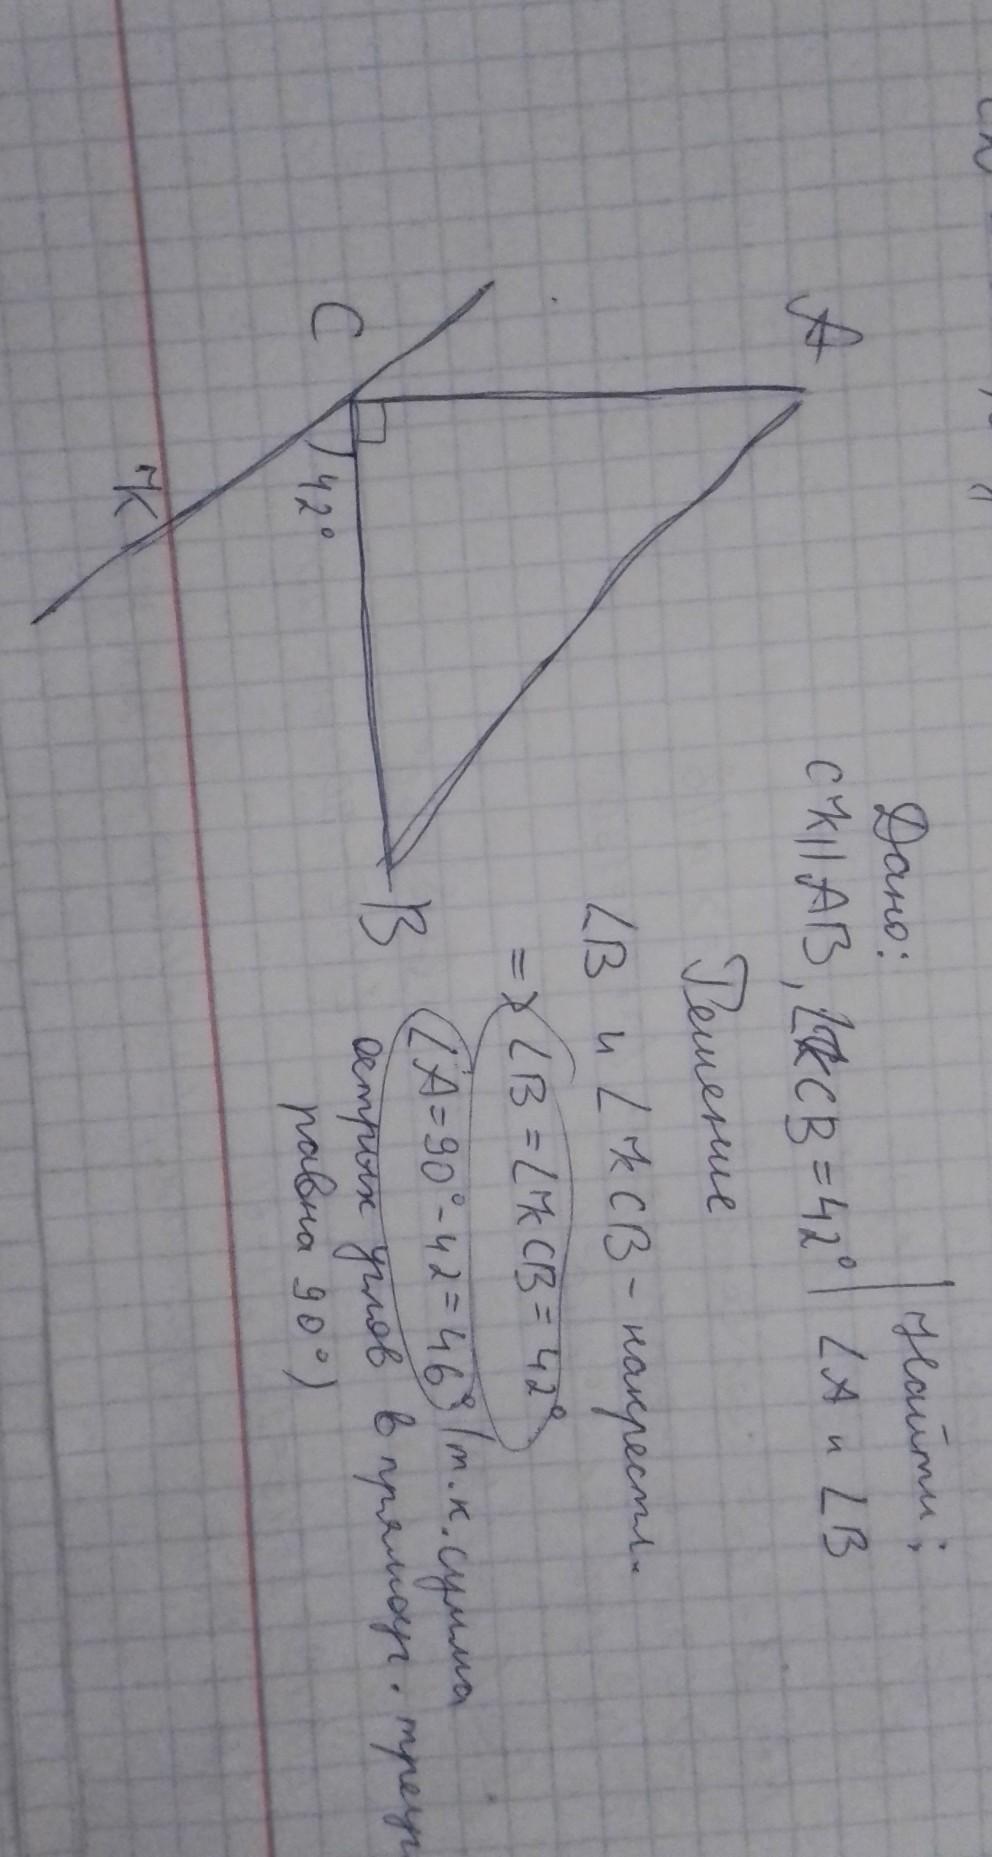 A
C
42°
K
B
Дано:
CK||AB, ∠KCB=42° | Найти:
∠A и ∠B
Решение
∠B и ∠KCB - накрестл.
=> ∠B=∠KCB=42°
∠A=90°-42=46° (т.к. сумма
острых углов в прямоуг. треуг
равна 90°)